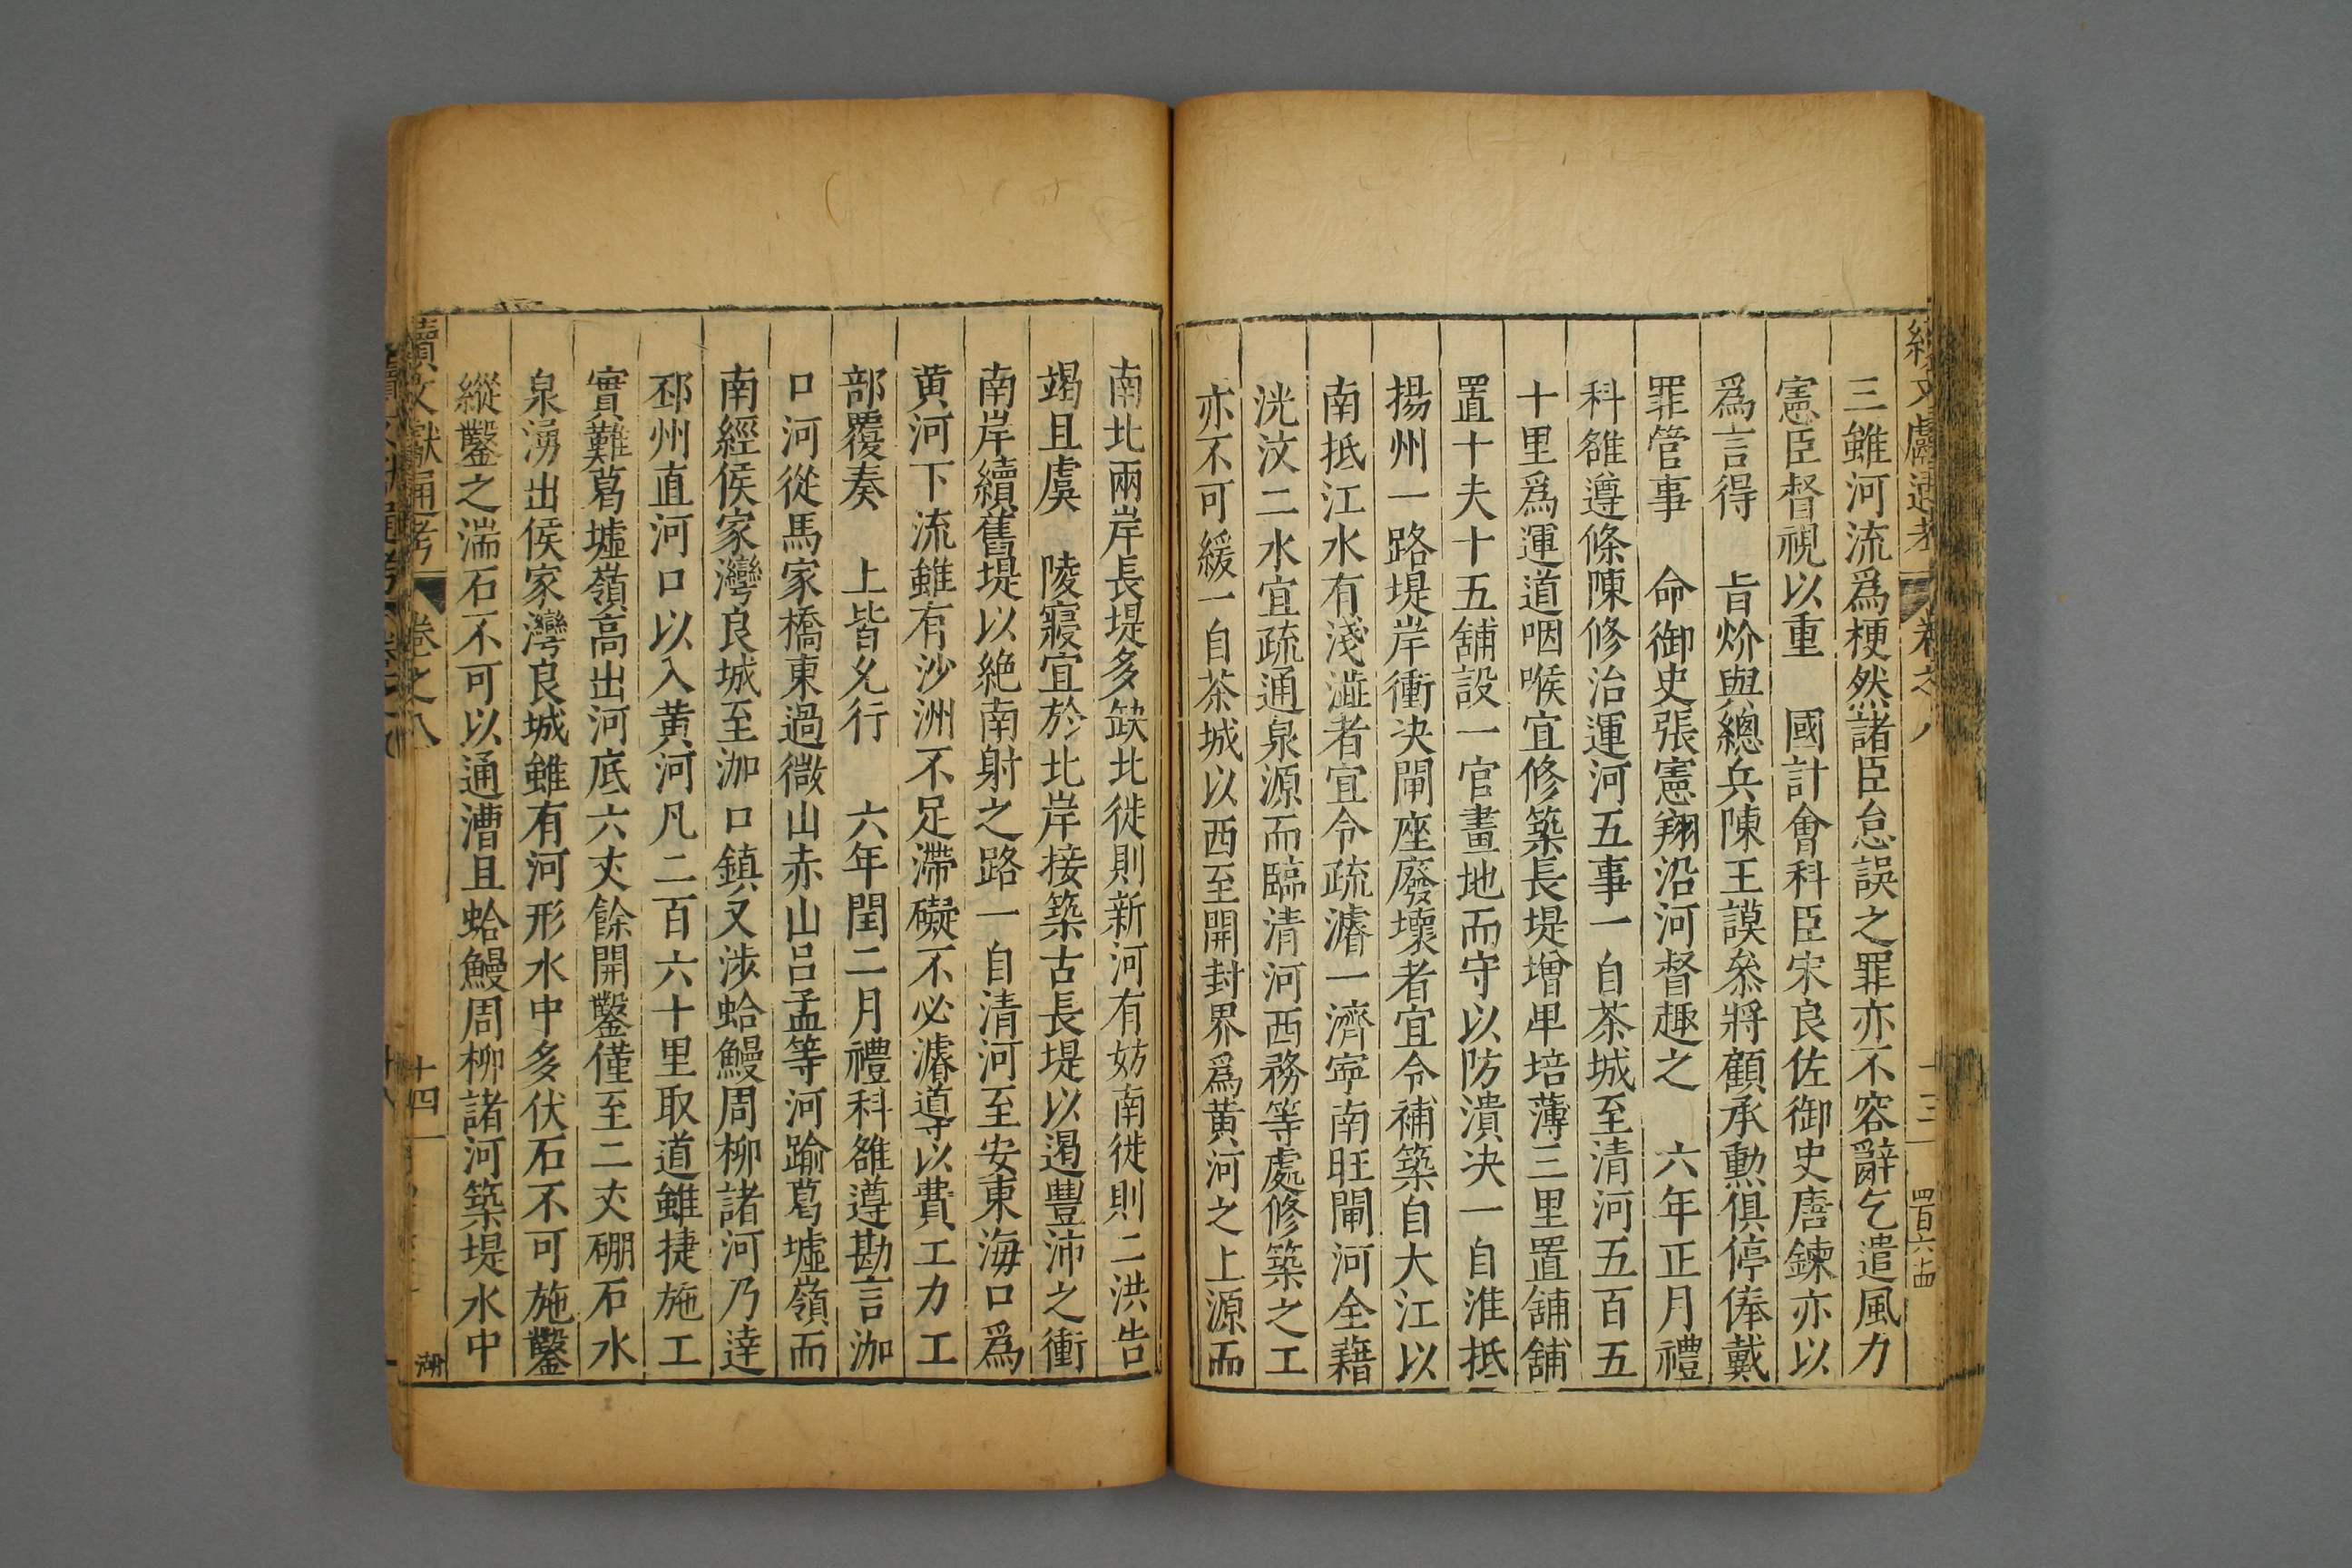 續文獻通考 卷之八 十三 四百六十四
三雖河流爲梗然諸臣怠誤之罪亦不容辭乞遣風力
憲臣督視以重 國計會科臣宋良佐御史唐鍊亦以
爲言得 旨炌與總兵陳王謨叅將顧承勲俱停俸戴
罪管事 命御史張憲翔沿河督趣之 六年正月禮
科雒遵條陳修治運河五事一自茶城至清河五百五
十里爲運道咽喉宜修築長堤增甲培薄三里置舖舖
置十夫十五舖設一官畫地而守以防潰决一自淮抵
揚州一路堤岸衝决閘座廢壞者宜令補築自大江以
南抵江水有淺澁者宜令疏濬一濟寜南旺閘河全藉
洸汶二水宜疏通泉源而臨清河西務等處修築之工
亦不可緩一自茶城以西至開封界爲黄河之上源而
南北兩岸長堤多缺北徙則新河有妨南徙則二洪告
竭且虞 陵寢宜於北岸接築古長堤以遏豐沛之衝
南岸續舊堤以絶南射之路一自清河至安東海口爲
黄河下流雖有沙洲不足滯礙不必濬導以費工力工
部覆奏 上皆允行 六年閏二月禮科雒遵勘言泇
口河從馬家橋東過微山赤山吕孟等河踰葛墟嶺而
南經侯家灣良城至泇口鎮又涉蛤鰻周柳諸河乃逹
邳州直河口以入黄河凡二百六十里取道雖捷施工
實難葛墟嶺高出河底六丈餘開鑿僅至二丈硼石水
泉湧出侯家灣良城雖有河形水中多伏石不可施鑿
縱鑿之湍石不可以通漕且蛤鰻周柳諸河築堤水中
續文獻通考 卷之八 十四 湖